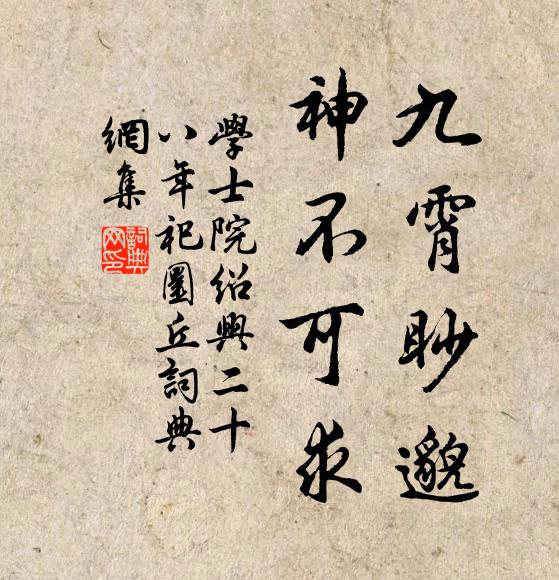 九霄眇邈
神不可求
學士院紹興二十
八年祀圜丘詞典
網集
詞典網印